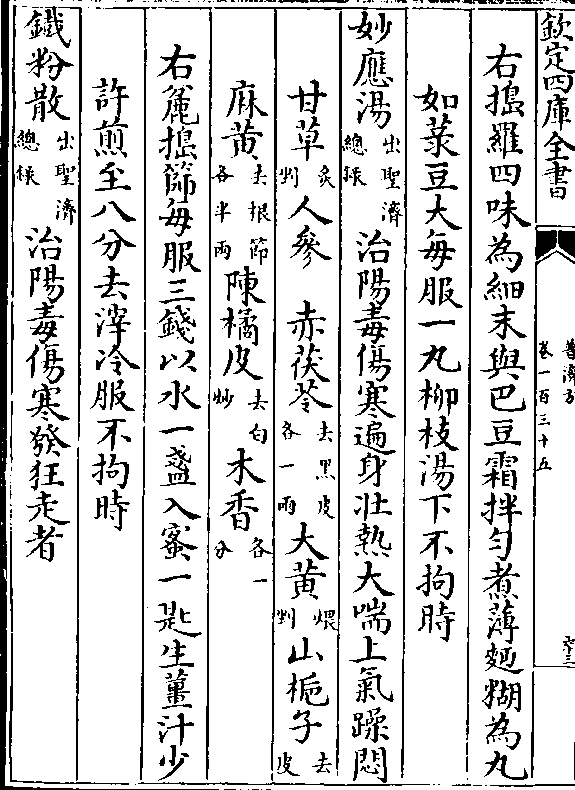 欽定四庫全書
普濟方
卷一百三十五
右搗羅四味為細末與巴豆霜拌匀煮薄麪糊為丸
如菉豆大每服一丸柳枝湯下不拘時
妙應湯出聖濟總錄治陽毒傷寒遍身壯熱大喘上氣躁悶
甘草炙剉人參 赤茯苓去黑皮各一兩大黄煨剉山梔子去皮
麻黄去根節各半兩陳橘皮去白炒木香各一分
右麄搗篩每服三錢以水一盞入蜜一匙生薑汁少
許煎至八分去滓冷服不拘時
鐵粉散出聖濟總録治陽毒傷寒發狂走者